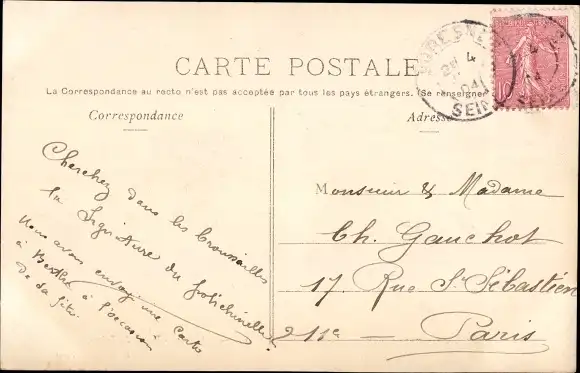 CARTE POSTALE
La Correspondance au recto n'est pas acceptée par tous les pays étrangers. (Se renseigne
Correspondance
Adresse
SEINE
Cherchez dans les broussailles
la Signature du polichinelle.
Nous avons envoyé une carte
à Berthe à l'occasion
de sa fête.
Monsieur & Madame
Ch. Gauchot
17. Rue St Sébastien
211e — Paris